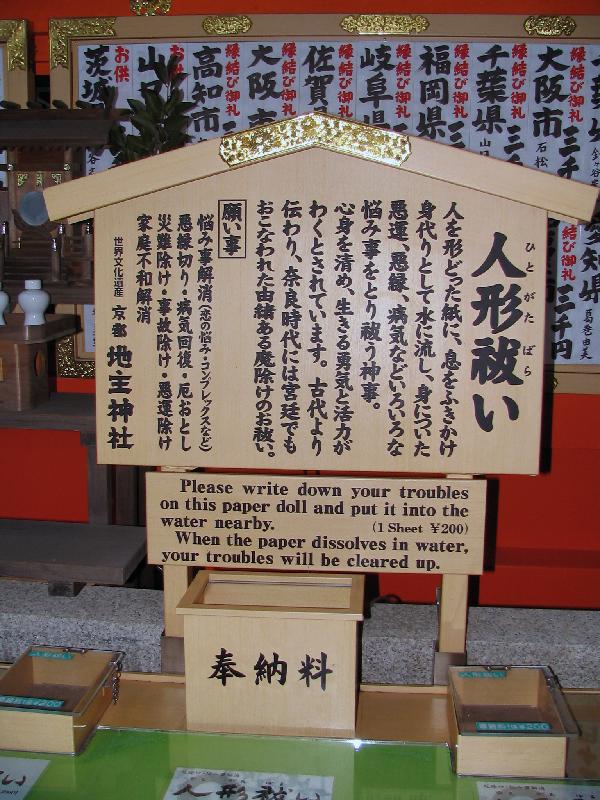 お供
縁結び御礼
縁結び御礼
縁結び御礼
縁結び御礼
縁結び御礼
縁結び御礼
縁結び御礼
高知市
大阪市
佐賀
岐阜県
福岡県
千葉県
大阪市
三千円
人形祓い
ひとがたばら
人を形どった紙に、息をふきかけ
身代りとして水に流し、身についた
悪運、悪縁、病気などいろいろな
悩み事をとり祓う神事。
心身を清め、生きる勇気と活力が
わくとされています。古代より
伝わり、奈良時代には宮廷でも
おこなわれた由緒ある魔除けのお祓い。
願い事
悩み事解消(恋の悩み・コンプレックスなど)
悪縁切り・病気回復・厄おとし
災難除け・事故除け・悪運除け
家庭不和解消
世界文化遺産 京都 地主神社
Please write down your troubles
on this paper doll and put it into the
water nearby. (1 Sheet ¥200)
When the paper dissolves in water,
your troubles will be cleared up.
奉納料
人形祓い
人形祓い
人形祓い